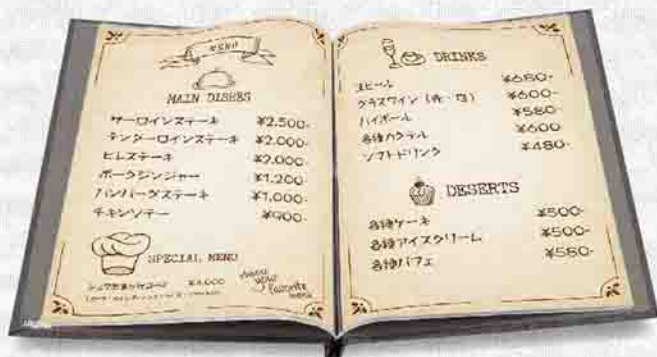 MENU
MAIN DISHES
サーロインステーキ ¥2,500-
テンダーロインステーキ ¥2,000-
ヒレステーキ ¥2,000-
ポークジンジャー ¥1,200-
ハンバーグステーキ ¥1,000-
チキンソテー ¥900-
SPECIAL MENU
シェフお任せコース ¥4,000
choose
your
favorite
menu
DRINKS
生ビール ¥680-
グラスワイン (赤・白) ¥600-
ハイボール ¥580-
各種カクテル ¥600
ソフトドリンク ¥480-
DESERTS
各種ケーキ ¥500-
各種アイスクリーム ¥500-
各種パフェ ¥580-